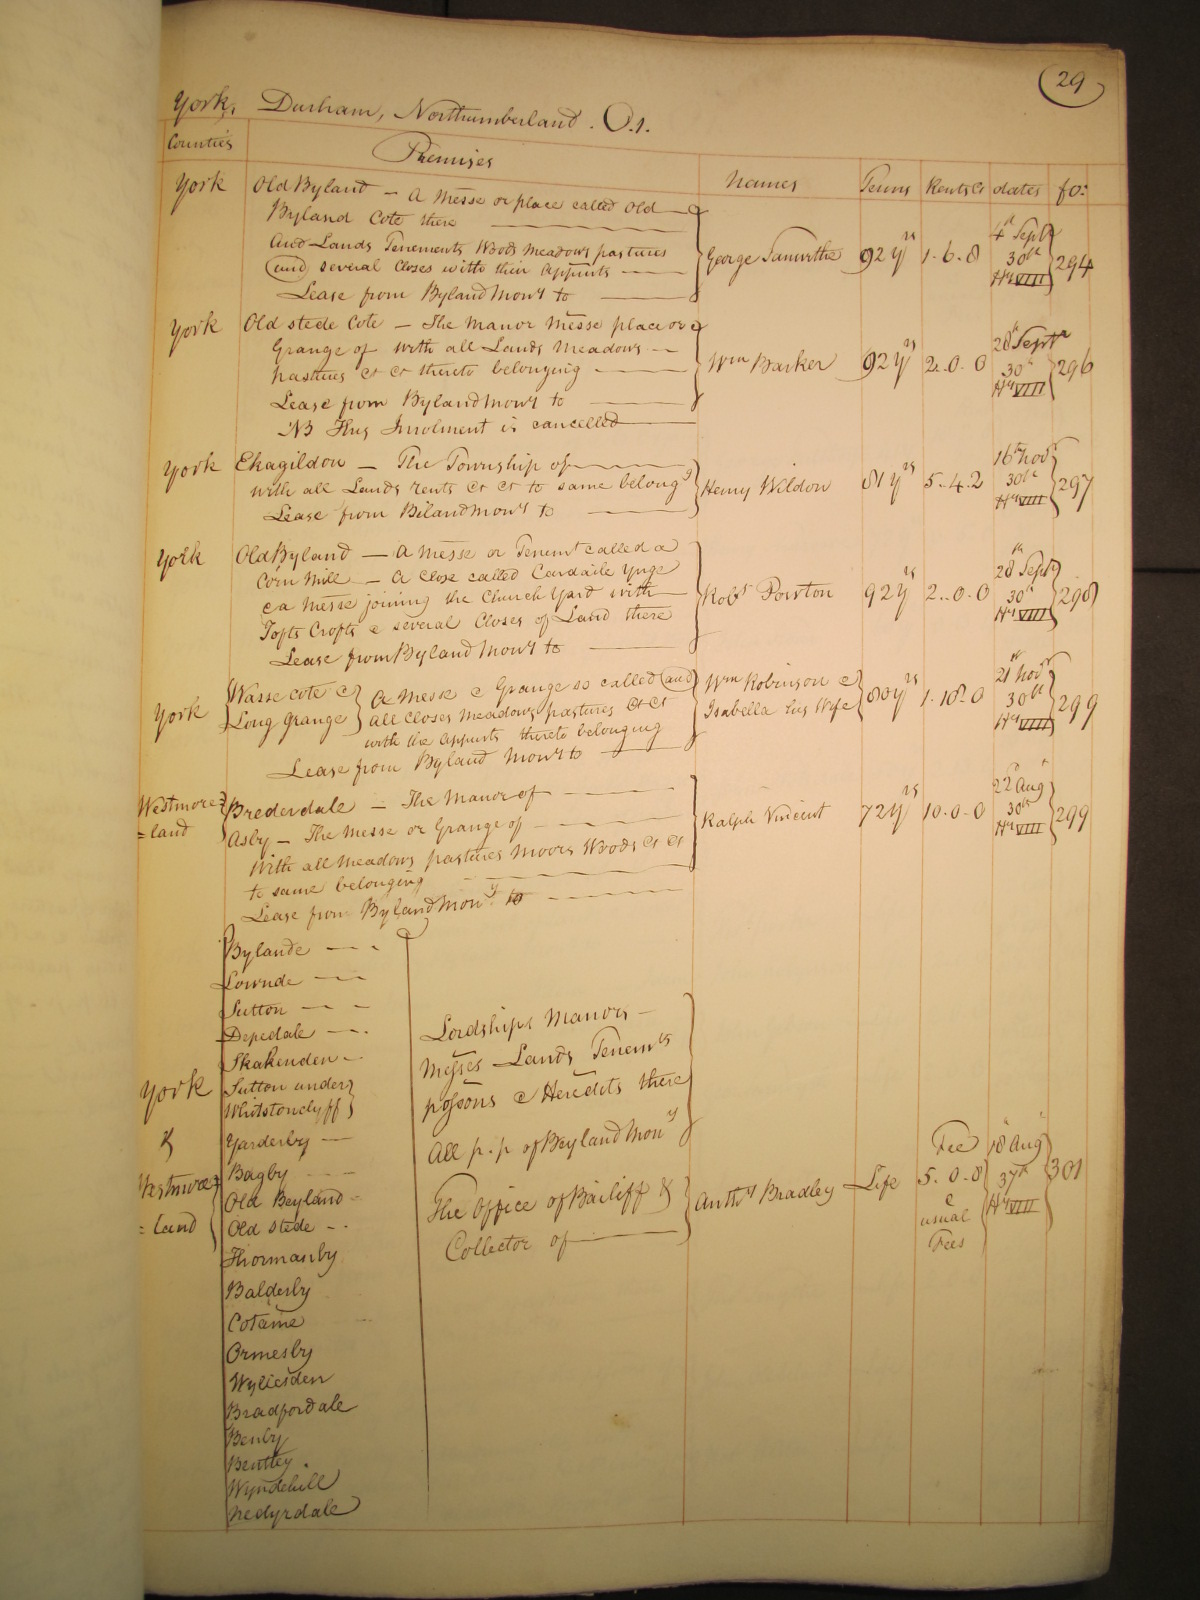 29
York, Durham, Northumberland. O.1.
Counties Premises Names Terms Rents &c dates fo:
York Old Byland — A Messe or place called Old
Byland Cote there
And Lands Tenements Woods Meadows pastures
(and) several Closes with their Appurts
Lease from Byland Mony to
George 92 yrs 1.6.8 4th Septr 30th Hy VIII 294
York Old stede Cote — The Manor Messe place or
Grange of with all Lands Meadows
pastures &c &c thereto belonging
Lease from Byland Mony to
Wm Barker 92 yrs 2.0.0 28th Septr 30th Hy VIII 296
NB This Inrolment is cancelled
York Skagildon — The Township of
with all Lands rents &c &c to same belongg
Lease from Biland Mony to
Henry Wildon 81 yrs 5.4.2 16th Novr 30th Hy VIII 297
York Old Byland — A Messe or Tenemt called a
Corn Mill — A Close called Cardaile Ynge
& a Messe joining the Church Yard with
Tofts Crofts & several Closes of Land there
Lease from Byland Mony to
Robt 92 yrs 2.0.0 28th Septr 30th Hy VIII 298
York Wasse cote & Long Grange
A Messe & Grange so called (and)
all Closes Meadows pastures &c &c
with the Appurts thereto belonging
Lease from Byland Mony to
Wm Robinson & Isabella his Wife 80 yrs 1.18.0 21st Novr 30th Hy VIII 299
Westmore=land Brederdale — The Manor of
Asby — The Messe or Grange of
With all Meadows pastures Moors Woods &c &c
to same belonging
Lease from Byland Mony to
Ralph Vincent 72 yrs 10.0.0 22d Aug 30th Hy VIII 299
York & Westmore=land
Bylande
Lownde
Sutton
Depedale
Skakenden
Sutton under
Whitstonclyff
Yarderby
Bagby
Old Beyland
Old stede
Thormanby
Balderby
Cotame
Ormesby
Wyliesden
Bradfordale
Benby
Bentley
Wyndehill
Nedyrdale
Lordships Manors
Messes Lands Tenemts
possons & Heredits there
All p.p of Beyland Mony
The Office of Bailiff &
Collector of
Anthy Bradley Life Fee 5.0.8 & usual Fees 18 Aug 37th Hy VIII 301